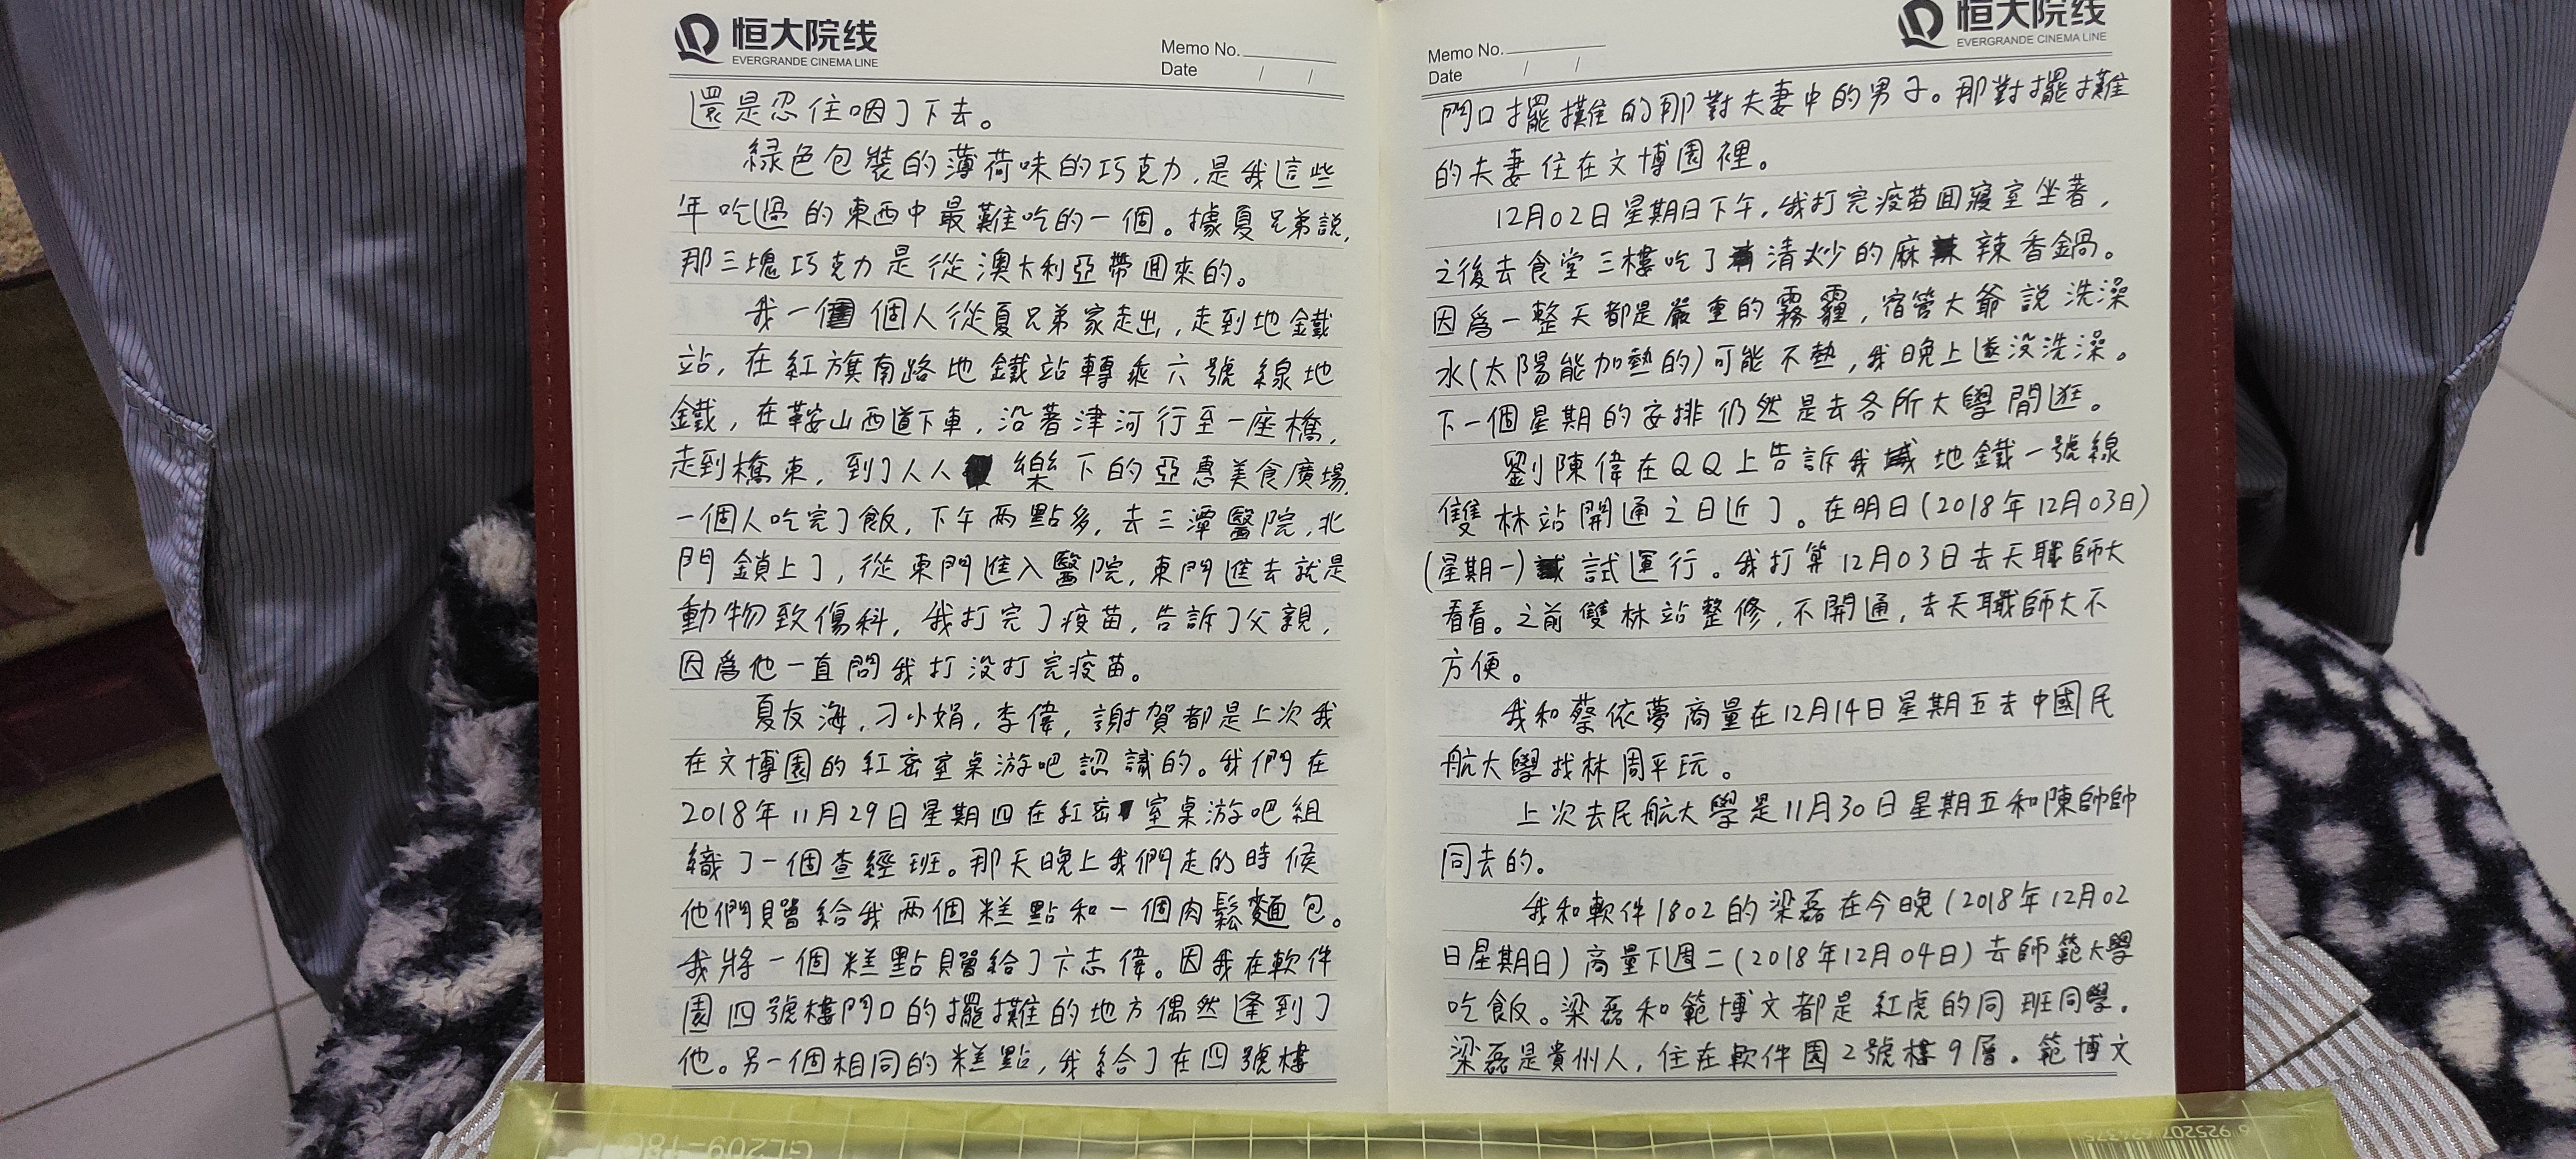 恒大院线
EVERGRANDE CINEMA LINE
Memo No.
Date / /
還是忍住咽了下去。
綠色包裝的薄荷味的巧克力,是我這些
年吃過的東西中最難吃的一個。據夏兄弟説,
那三塊巧克力是從澳大利亞帶回來的。
我一個人從夏兄弟家走出,走到地鐵
站,在紅旗南路地鐵站轉乘六號線地
鐵,在鞍山西道下車,沿著津河行至一座橋,
走到橋東,到了人人樂下的亞惠美食廣場,
一個人吃完了飯,下午兩點多,去三潭醫院,北
門鎖上了,從東門進入醫院,東門進去就是
動物致傷科,我打完了疫苗,告訴了父親,
因爲他一直問我打没打完疫苗。
夏友海,刁小娟,李偉,謝賀都是上次我
在文博園的紅密室桌游吧認識的。我們在
2018年11月29日星期四在紅密室桌游吧組
織了一個查經班。那天晚上我們走的時候
他們贈給我兩個糕點和一個肉鬆麵包。
我將一個糕點贈給了卞志偉。因我在軟件
園四號樓門口的擺攤的地方偶然逢到了
他。另一個相同的糕點,我給了在四號樓
恒大院线
EVERGRANDE CINEMA LINE
Memo No.
Date / /
門口擺攤的那對夫妻中的男子。那對擺攤
的夫妻住在文博園裡。
12月02日星期日下午,我打完疫苗回寢室坐著,
之後去食堂三樓吃了清炒的麻辣香鍋。
因爲一整天都是嚴重的霧霾,宿管大爺説洗澡
水(太陽能加熱的)可能不熱,我晚上遂没洗澡。
下一個星期的安排仍然是去各所大學閒逛。
劉陳偉在QQ上告訴我地鐵一號線
雙林站開通之日近了。在明日(2018年12月03日)
(星期一)試運行。我打算12月03日去天職師大
看看。之前雙林站整修,不開通,去天職師大不
方便。
我和蔡依夢商量在12月14日星期五去中國民
航大學找林周平玩。
上次去民航大學是11月30日星期五和陳帥帥
同去的。
我和軟件1802的梁磊在今晚(2018年12月02
日星期日)商量下週二(2018年12月04日)去師範大學
吃飯。梁磊和範博文都是紅虎的同班同學。
梁磊是貴州人,住在軟件園2號樓9層。範博文
GL209-18C
6 925207 624375